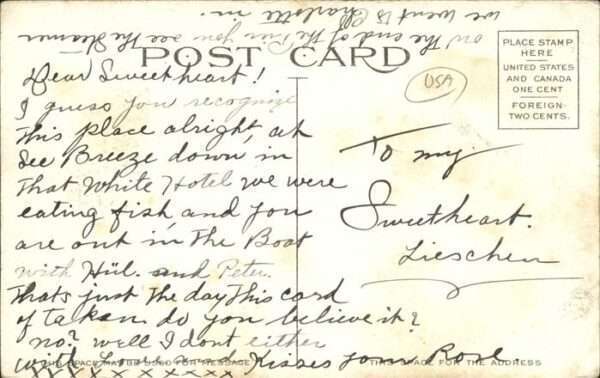 on the end of the Pier you see the Steamer
we went to Charlotte in.
POST CARD
USA
PLACE STAMP
HERE
UNITED STATES
AND CANADA
ONE CENT
FOREIGN-
TWO CENTS.
Dear Sweetheart!
I guess you recognize
this place alright, at
See Breeze down in
That White Hotel we were
eating fish, and you
are out in The Boat
with Hül. and Peter.
Thats just The day This card
if taken do you believe it?
no? well I dont either
with Love and Kisses your Rose
x x x x x x x x x
To my
Sweetheart.
Lieschen
THIS SPACE MAY BE USED FOR MESSAGE
THIS SPACE FOR THE ADDRESS